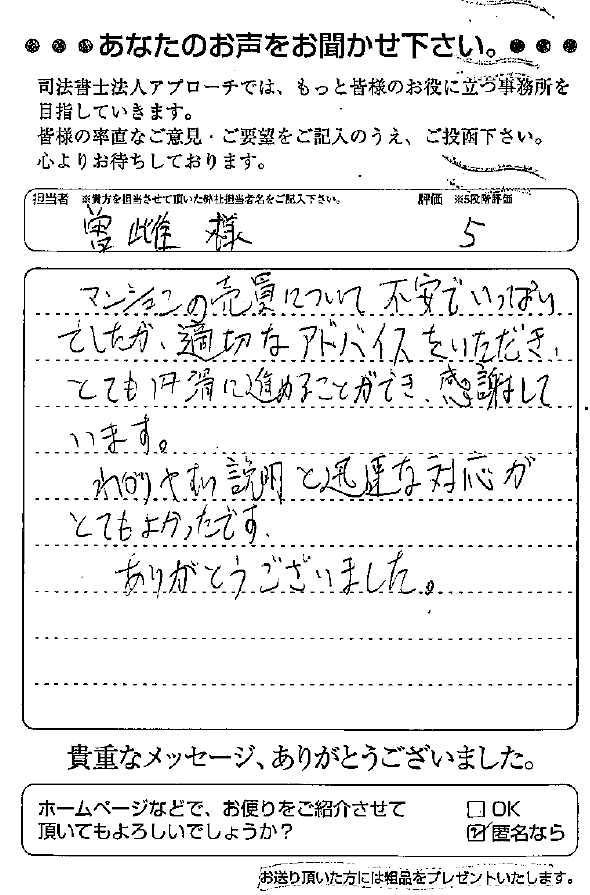 ●●●あなたのお声をお聞かせ下さい。●●●
司法書士法人アプローチでは、もっと皆様のお役に立つ事務所を
目指していきます。
皆様の率直なご意見・ご要望をご記入のうえ、ご投函下さい。
心よりお待ちしております。
担当者 ※貴方を担当させて頂いた弊社担当者名をご記入下さい。 評価 ※5段階評価
曽雌 様 5
マンションの売買について不安でいっぱい
でしたが、適切なアドバイスをいただき、
とても円滑に進めることができ、感謝して
います。
わかりやすい説明と迅速な対応が
とてもよかったです。
ありがとうございました。
貴重なメッセージ、ありがとうございました。
ホームページなどで、お便りをご紹介させて □OK
頂いてもよろしいでしょうか？ ☑匿名なら
お送り頂いた方には粗品をプレゼントいたします。